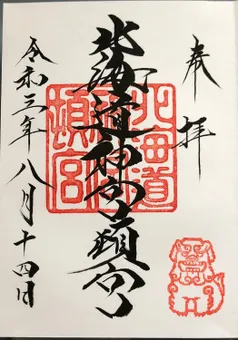 奉拝
北海道神宮頓宮
北海道
神宮
頓宮
令和三年八月十四日